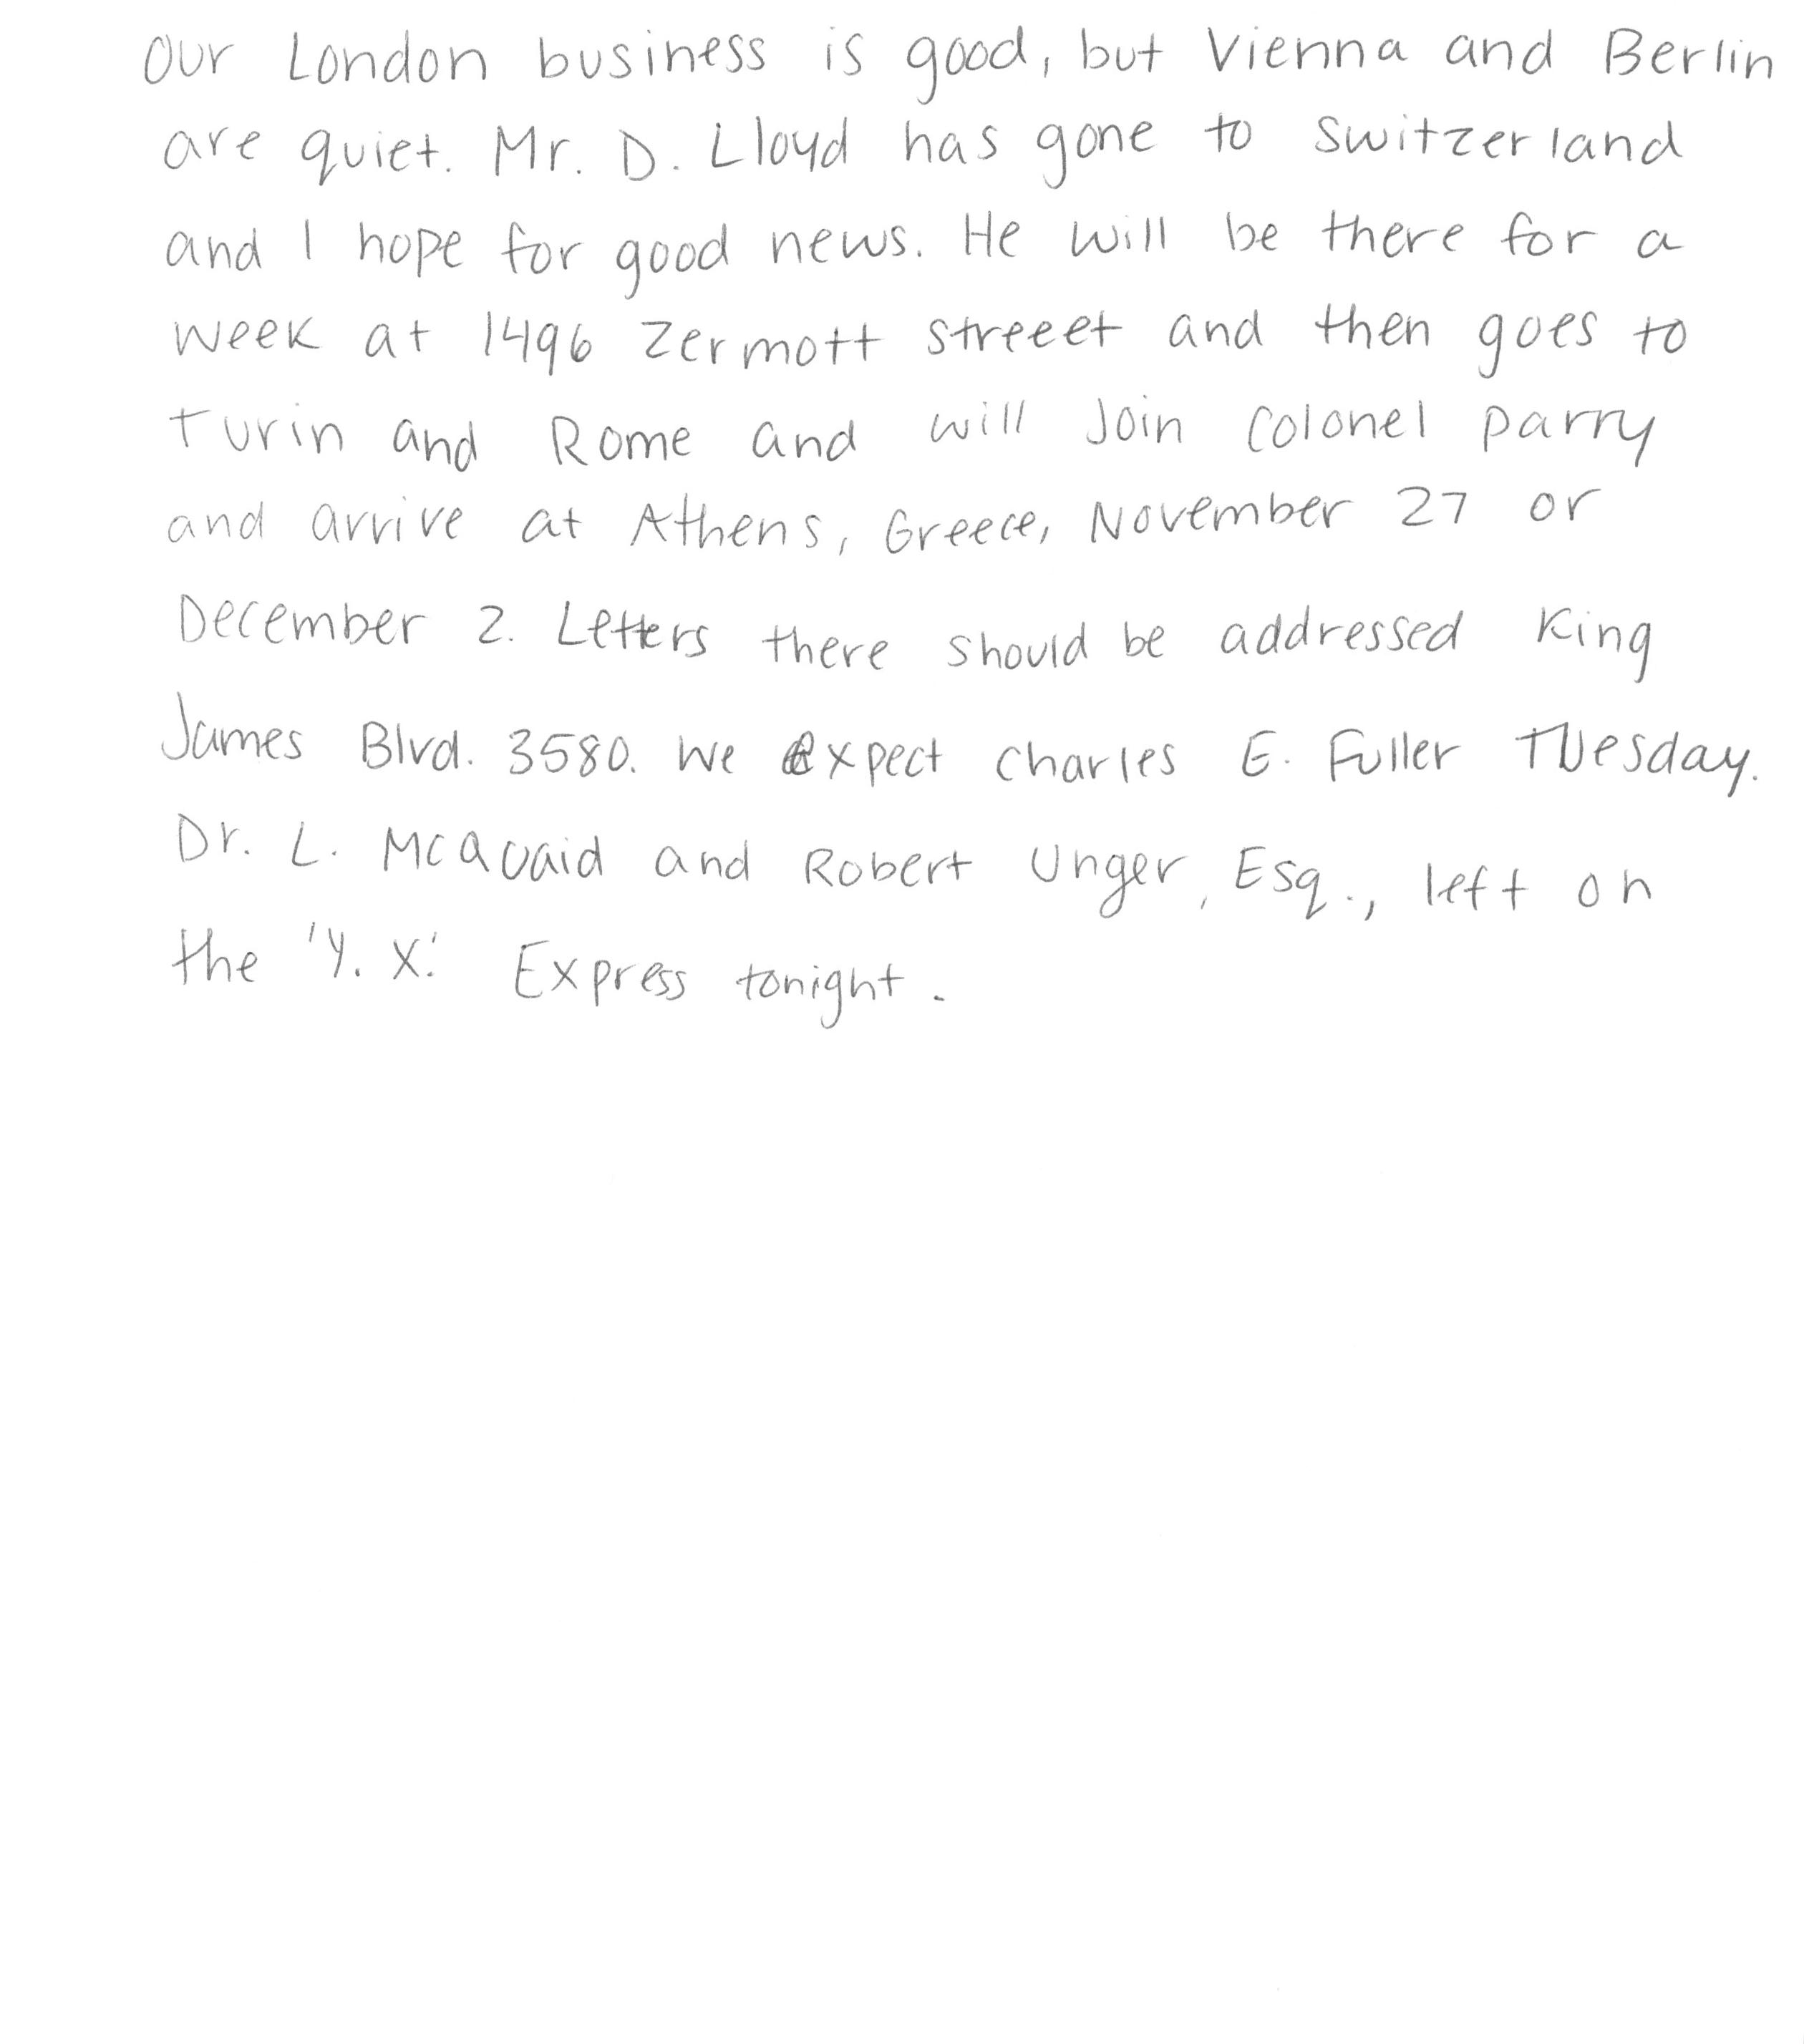 Our London business is good, but Vienna and Berlin
are quiet. Mr. D. Lloyd has gone to Switzerland
and I hope for good news. He will be there for a
week at 1496 Zermott streeet and then goes to
Turin and Rome and will Join Colonel parry
and arrive at Athens, Greece, November 27 or
December 2. Letters there should be addressed King
James Blvd. 3580. We expect Charles E. Fuller Tuesday.
Dr. L. McQuaid and Robert Unger, Esq., left on
the 'Y. X.' Express tonight.